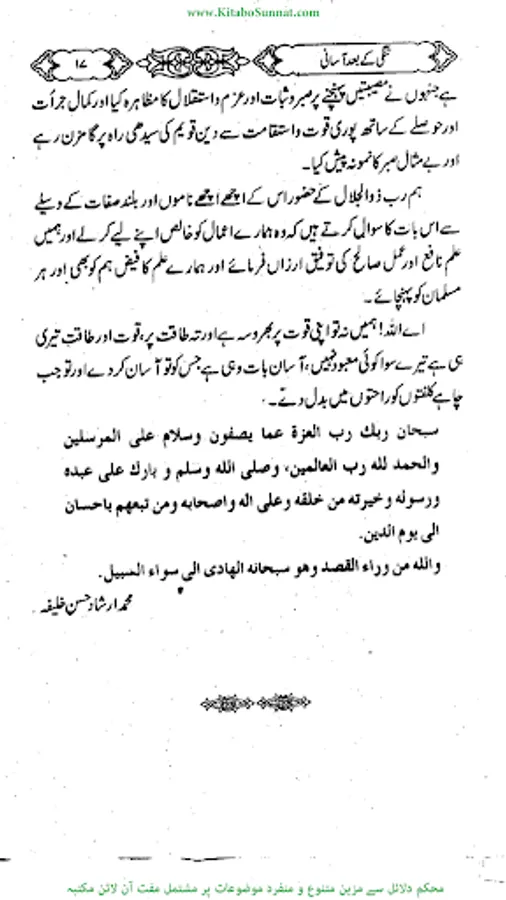 www.KitaboSunnat.com
تنگی کے بعد آسانی
۱۷
ہے جنہوں نے مصیبتیں پہنچنے پر صبر و ثبات اور عزم و استقلال کا مظاہرہ کیا اور کمال جرأت
اور حوصلے کے ساتھ پوری قوت و استقامت سے دین قویم کی سیدھی راہ پر گامزن رہے
اور بے مثال صبر کا نمونہ پیش کیا۔
ہم رب ذوالجلال کے حضور اس کے اچھے اچھے ناموں اور بلند صفات کے وسیلے
سے اس بات کا سوال کرتے ہیں کہ وہ ہمارے اعمال کو خالص اپنے لیے کر لے اور ہمیں
علم نافع اور عمل صالح کی توفیق ارزاں فرمائے اور ہمارے علم کا فیض ہم کو بھی اور ہر
مسلمان کو پہنچائے۔
اے اللہ! ہمیں نہ تو اپنی قوت پر بھروسہ ہے اور نہ طاقت پر، قوت اور طاقت تیری
ہی ہے تیرے سوا کوئی معبود نہیں، آسان بات وہی ہے جس کو تو آسان کر دے اور تو جب
چاہے کلفتوں کو راحتوں میں بدل دے۔
سبحان ربك رب العزة عما يصفون وسلام على المرسلين
والحمد لله رب العالمين، وصلى الله وسلم و بارك على عبده
ورسوله وخيرته من خلقه وعلى اله واصحابه ومن تبعهم باحسان
الى يوم الدين.
والله من وراء القصد وهو سبحانه الهادى الى سواء السبيل.
محمد ارشاد حسن خلیفہ
محکم دلائل سے مزین متنوع و منفرد موضوعات پر مشتمل مفت آن لائن مکتبہ